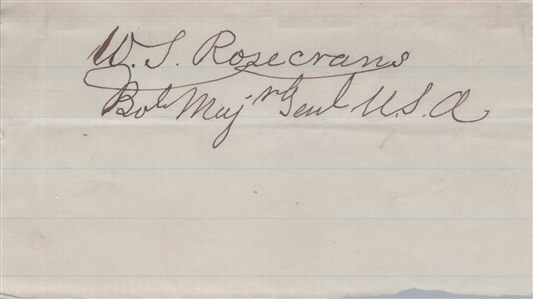 W. S. Rosecrans
Bvt Majr Genl U.S.A